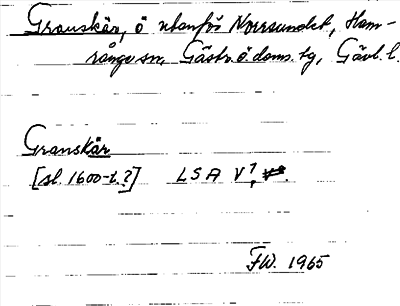 Granskär, ö utanför Norrsundet, Ham-
rånge sn, Gästr. ö. doms. tg, Gävl. l.
Granskär
[sl. 1600-t.?] LSA V 7,
FW. 1965